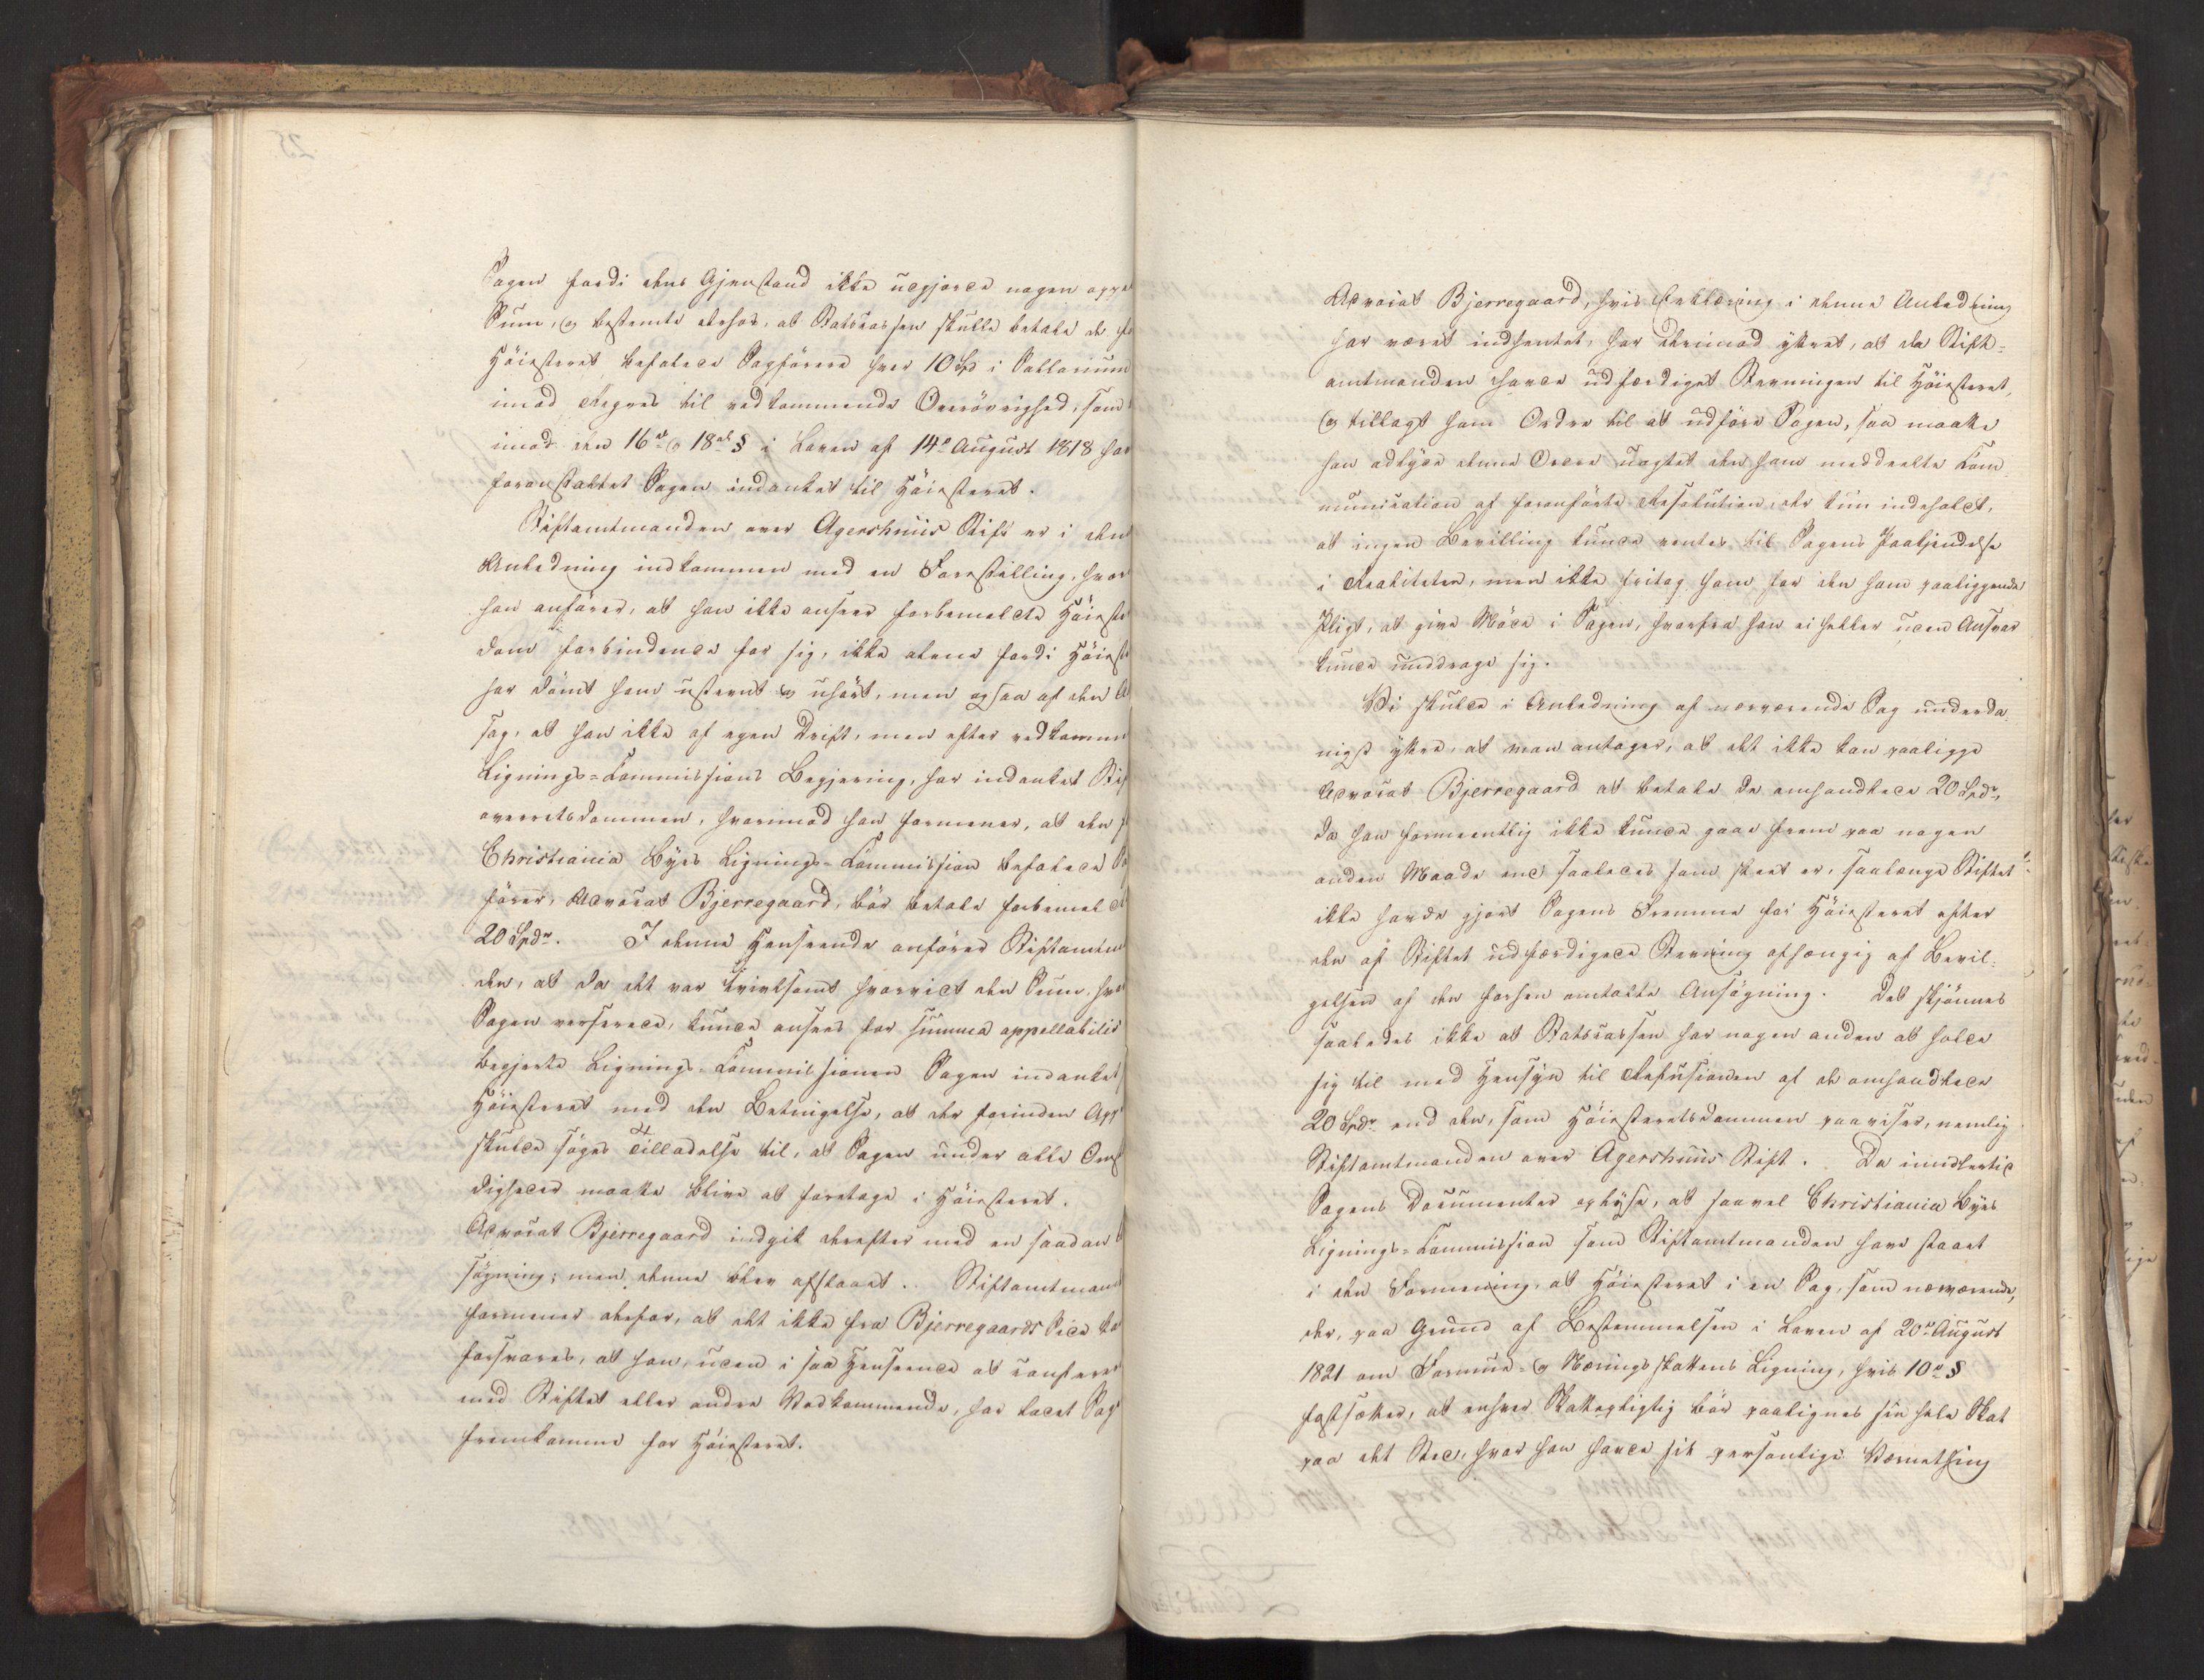 Sagen fordi dens Gjenstand ikke udgjorde nogen appel
Sum, og bestemte derhos, at Statscassen skulle betale de for
Höiesteret befalede Sagförere hver 10 Spd i Sallarium
imod Regres til vedkommende Överövrighed, som
imod den 16de og 18de § i Loven af 14de August 1818 har
foranstaltet Sagen indanket til Höiesteret.
Stiftamtmanden over Agershuus Stift er i den
Anledning indkommen med en Forestilling, hvor
han anförer, at han ikke anseer forbemeldte Höieste
dom forbindende for sig, ikke alene fordi Höieste
har dömt ham ustevnt og uhört, men ogsaa af den A
sag, at han ikke af egen Drift, men efter vedkomme
Lignings-Commissions Begjering, har indanket Stif
overretsdommen, hvorimod han formener, at den f
Christiania Byes Lignings-Commission befalede Sag
förer, Advocat Bjerregaard, bör betale forbemeldte
20 Spdr. I denne Henseende anförer Stiftamtm
den, at da det var tvivlsomt hvorvidt den Sum, hvor
Sagen verserede, kunde ansees for summa appellabilis
begjerte Lignings-Commissionen Sagen indanket
Höiesteret med den Betingelse, at der forinden App
skulde söges Tilladelse til, at Sagen under alle Oms
digheder maatte blive at foretage i Höiesteret.
Advocat Bjerregaard indgik derefter med en saadan
sögning; men denne blev afslaaet. Stiftamtmand
formener derfor, at det ikke fra Bjerregaards Side ka
forsvares, at han, uden i saa Henseende at conferere
med Stiftet eller andre Vedkommende, har ladet Sag
fremkomme for Höiesteret.
Advocat Bjerregaard, hvis Erklæring i denne Anledning
har været indhentet, har derimod yttret, at da Stift-
amtmanden havde udfærdiget Stevningen til Höiesteret,
og tillagt ham Ordre til at udföre Sagen, saa maatte
han adlyde denne Ordre uagtet den ham meddeelte Com
munication af foranförte Resolution, der kun indeholdt,
at ingen Bevilling kunde ventes til Sagens Paakjendelse
i Realiteten, men ikke fritog ham for den ham paaliggende
Pligt, at give Möde i Sagen, hvorfra han ei heller uden Ansvar
kunde unddrage sig.
Vi skulde i Anledning af nærværende Sag underda-
nigst yttre, at man antager, at det ikke kan paaligge
Advocat Bjerregaard at betale de omhandlede 20 Spdr,
da han formeentlig ikke kunde gaae frem paa nogen
anden Maade end saaledes som skeet er, saalænge Stiftet
ikke havde gjort Sagens Fremme for Höiesteret efter
den af Stiftet udfærdigede Stevning afhængig af Bevil-
gelsen af den forhen omtalte Ansögning. Det skjönnes
saaledes ikke at Statscassen har nogen anden at holde
sig til med Hensyn til Refusionen af de omhandlede
20 Spdr end den, som Höiesteretsdommen paaviser, nemlig
Stiftamtmanden over Agershuus Stift. Da imidlertid
Sagens Documenter oplyse, at saavel Christiania Byes
Lignings-Commission som Stiftamtmanden have staaet
i den Formening, at Höiesteret i en Sag, som nærværende,
der, paa Grund af Bestemmelsen i Loven af 20de August
1821 om Formue- og Næringsskattens Ligning, hvis 10de §
fastsætter, at enhver Skattepligtig bör paalignes sin hele Skat
paa det Sted, hvor han havde sit personlige Værnething